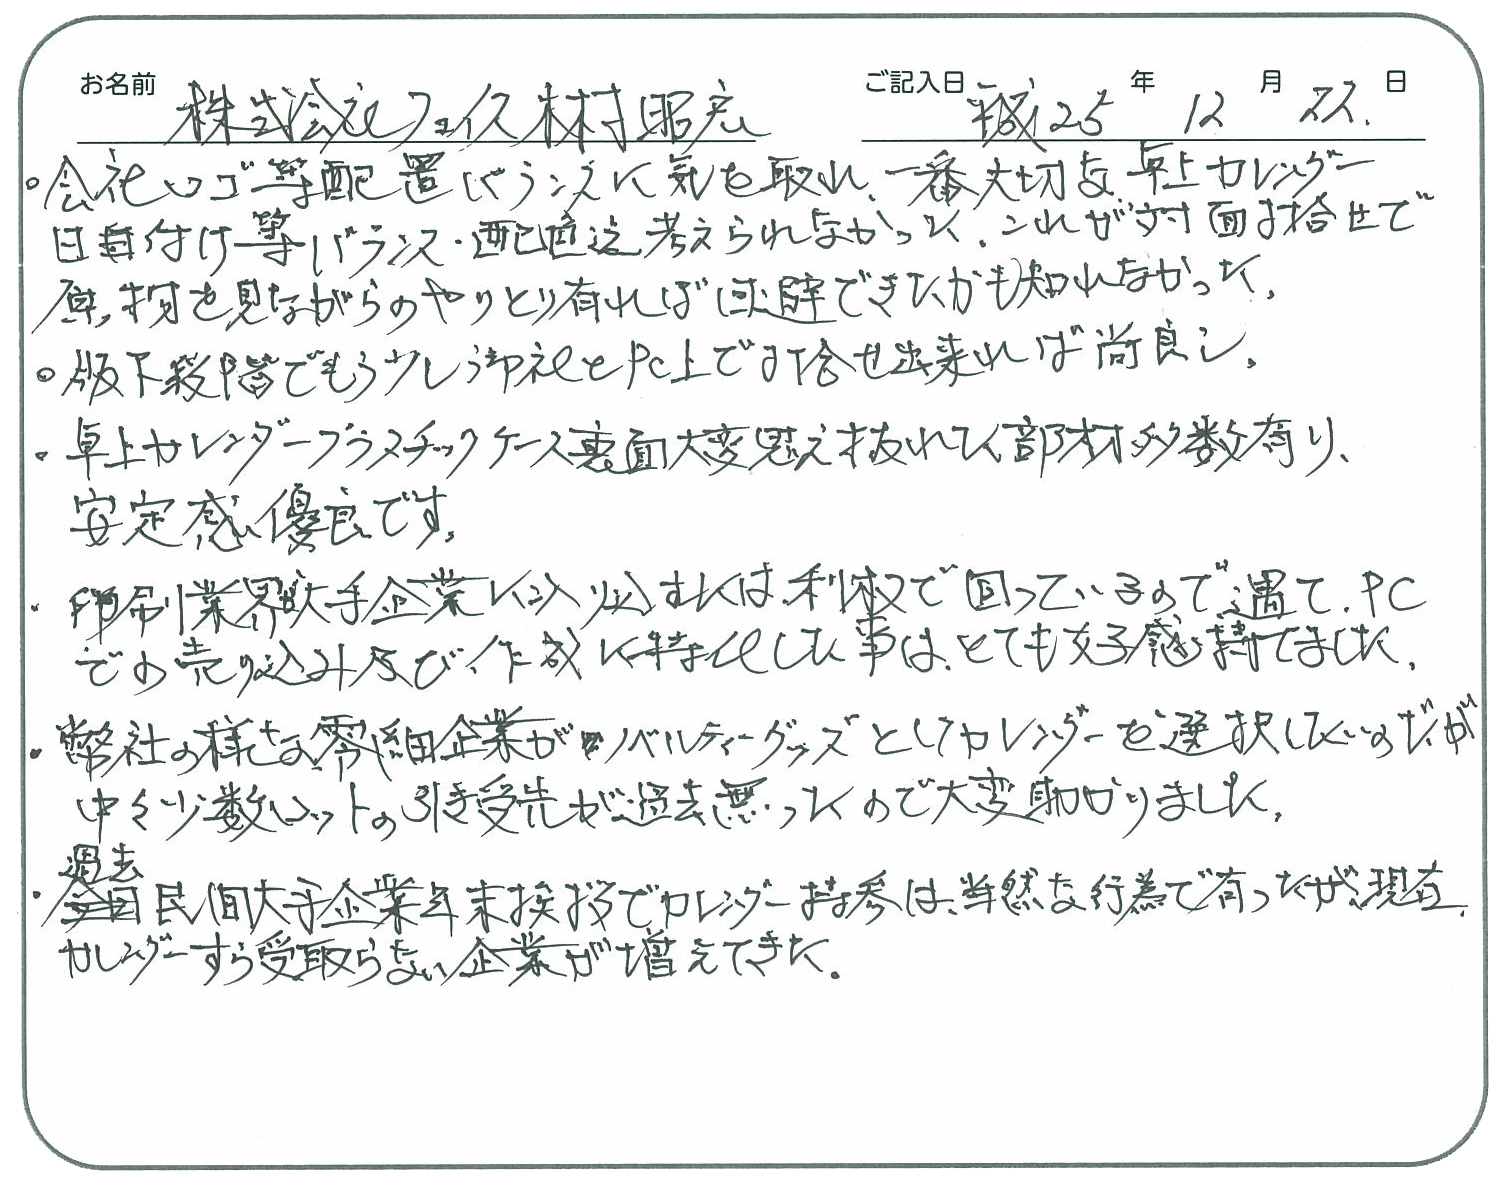 お名前 株式会社フェイス 木村昭宏 ご記入日 平成25年 12月 22日
・会社ロゴ等配置バランスに気を取れ、一番大切な卓上カレンダー
日付け等バランス・配置迄考えられなかった。これが対面打合せで
原物を見ながらのやりとり有れば回避できたかも知れなかった。
・版下段階でもう少し御社とPC上で打合せ出来れば尚良し。
・卓上カレンダープラスチックケース裏面大変考え抜れてた部材多数有り、
安定感優良です。
・印刷業界大手企業に入り込むには、利权で回っているので、PC
での売り込み及び作成に特化した事は、とても好感持てました。
・弊社の様な零細企業がノベルティーグッズとしてカレンダーを選択したいのだが
中々少数ロットの引き受先が過去無ったので大変助かりました。
過去
・民間大手企業年末挨拶でカレンダー持参は、当然な行為で有ったが、現在、
カレンダーすら受取らない企業が増えてきた。